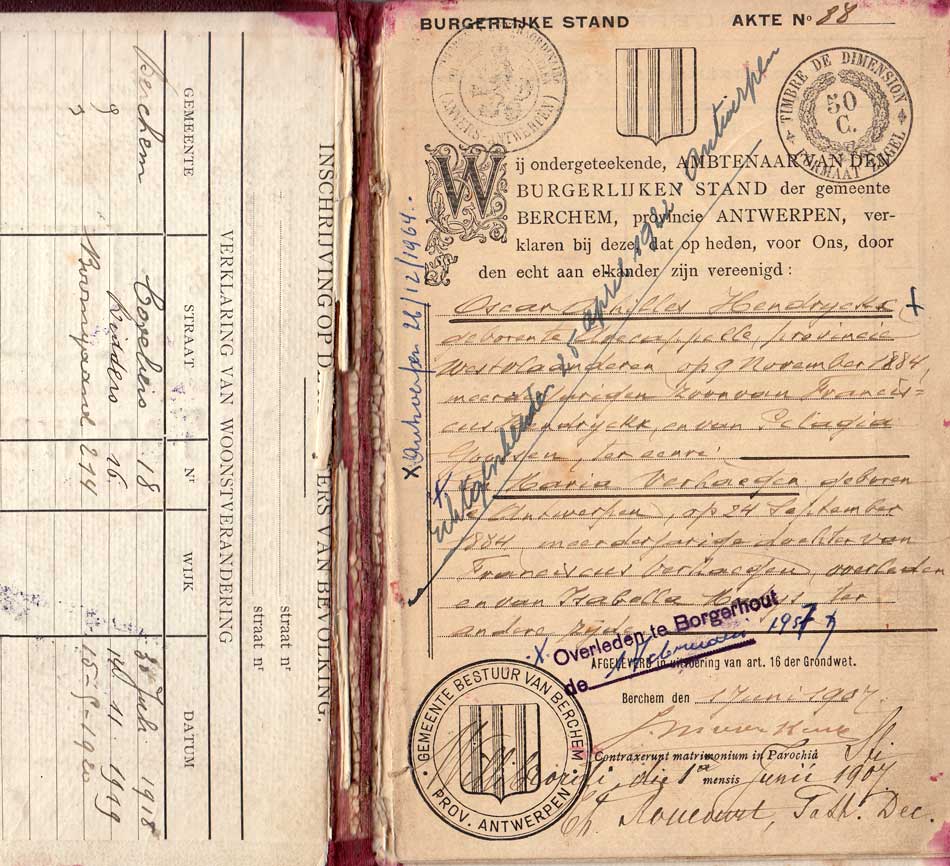 BURGERLIJKE STAND
AKTE No 88
TIMBRE DE DIMENSION
50
C.
FORMAAT ZEGEL
(ANVERS-ANTWERPEN)
Wij ondergeteekende, AMBTENAAR VAN DEN
BURGERLIJKEN STAND der gemeente
BERCHEM, provincie ANTWERPEN, ver-
klaren bij deze, dat op heden, voor Ons, door
den echt aan elkander zijn vereenigd :
Oscar Achilles Hendryckx
geboren te provincie
Westvlaanderen op 9 November 1884,
meerderjarigen zoon van Francis-
cus Hendryckx, en van Pelagia
ter eenre:
Maria Verhaegen geboren
te Antwerpen, op 24 September
1884 meerderjarige dochter van
Franciscus Verhaegen, overleden
en van Isabella ter
andere zijde
Echtgescheiden 25 april 1922 Antwerpen
X Antwerpen 26/12/1964.
Overleden te Borgerhout
de Februari 1957
AFGELEVERD in uitvoering van art. 16 der Grondwet.
Berchem den 1 Juni 1907
GEMEENTE BESTUUR VAN BERCHEM
PROV. ANTWERPEN
Contraxerunt matrimonium in Parochiâ Sti
Willibrordi die 1a mensis Junii 1907
Past. Dec.
INSCHRIJVING OP D ERS VAN BEVOLKING.
straat nr
straat nr
VERKLARING VAN WOONSTVERANDERING
GEMEENTE STRAAT Nr WIJK DATUM
Berchem 18 30 Juli 1918
" Ridders 16 14 11 1919
" 214 15-5-1920